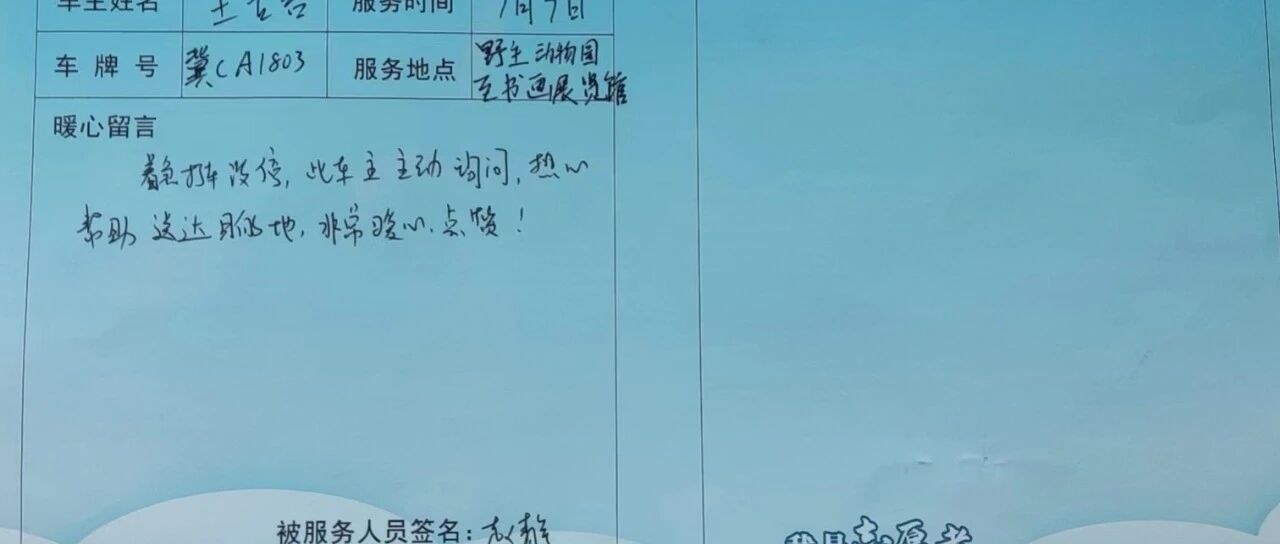 车主姓名 服务时间 7月7日
车牌号 冀CA1803 服务地点 野生动物园
至书画展览馆
暖心留言
着急打车没停,此车主主动询问,热心
帮助送达目的地,非常暖心.点赞!
被服务人员签名:赵静
我是志愿者